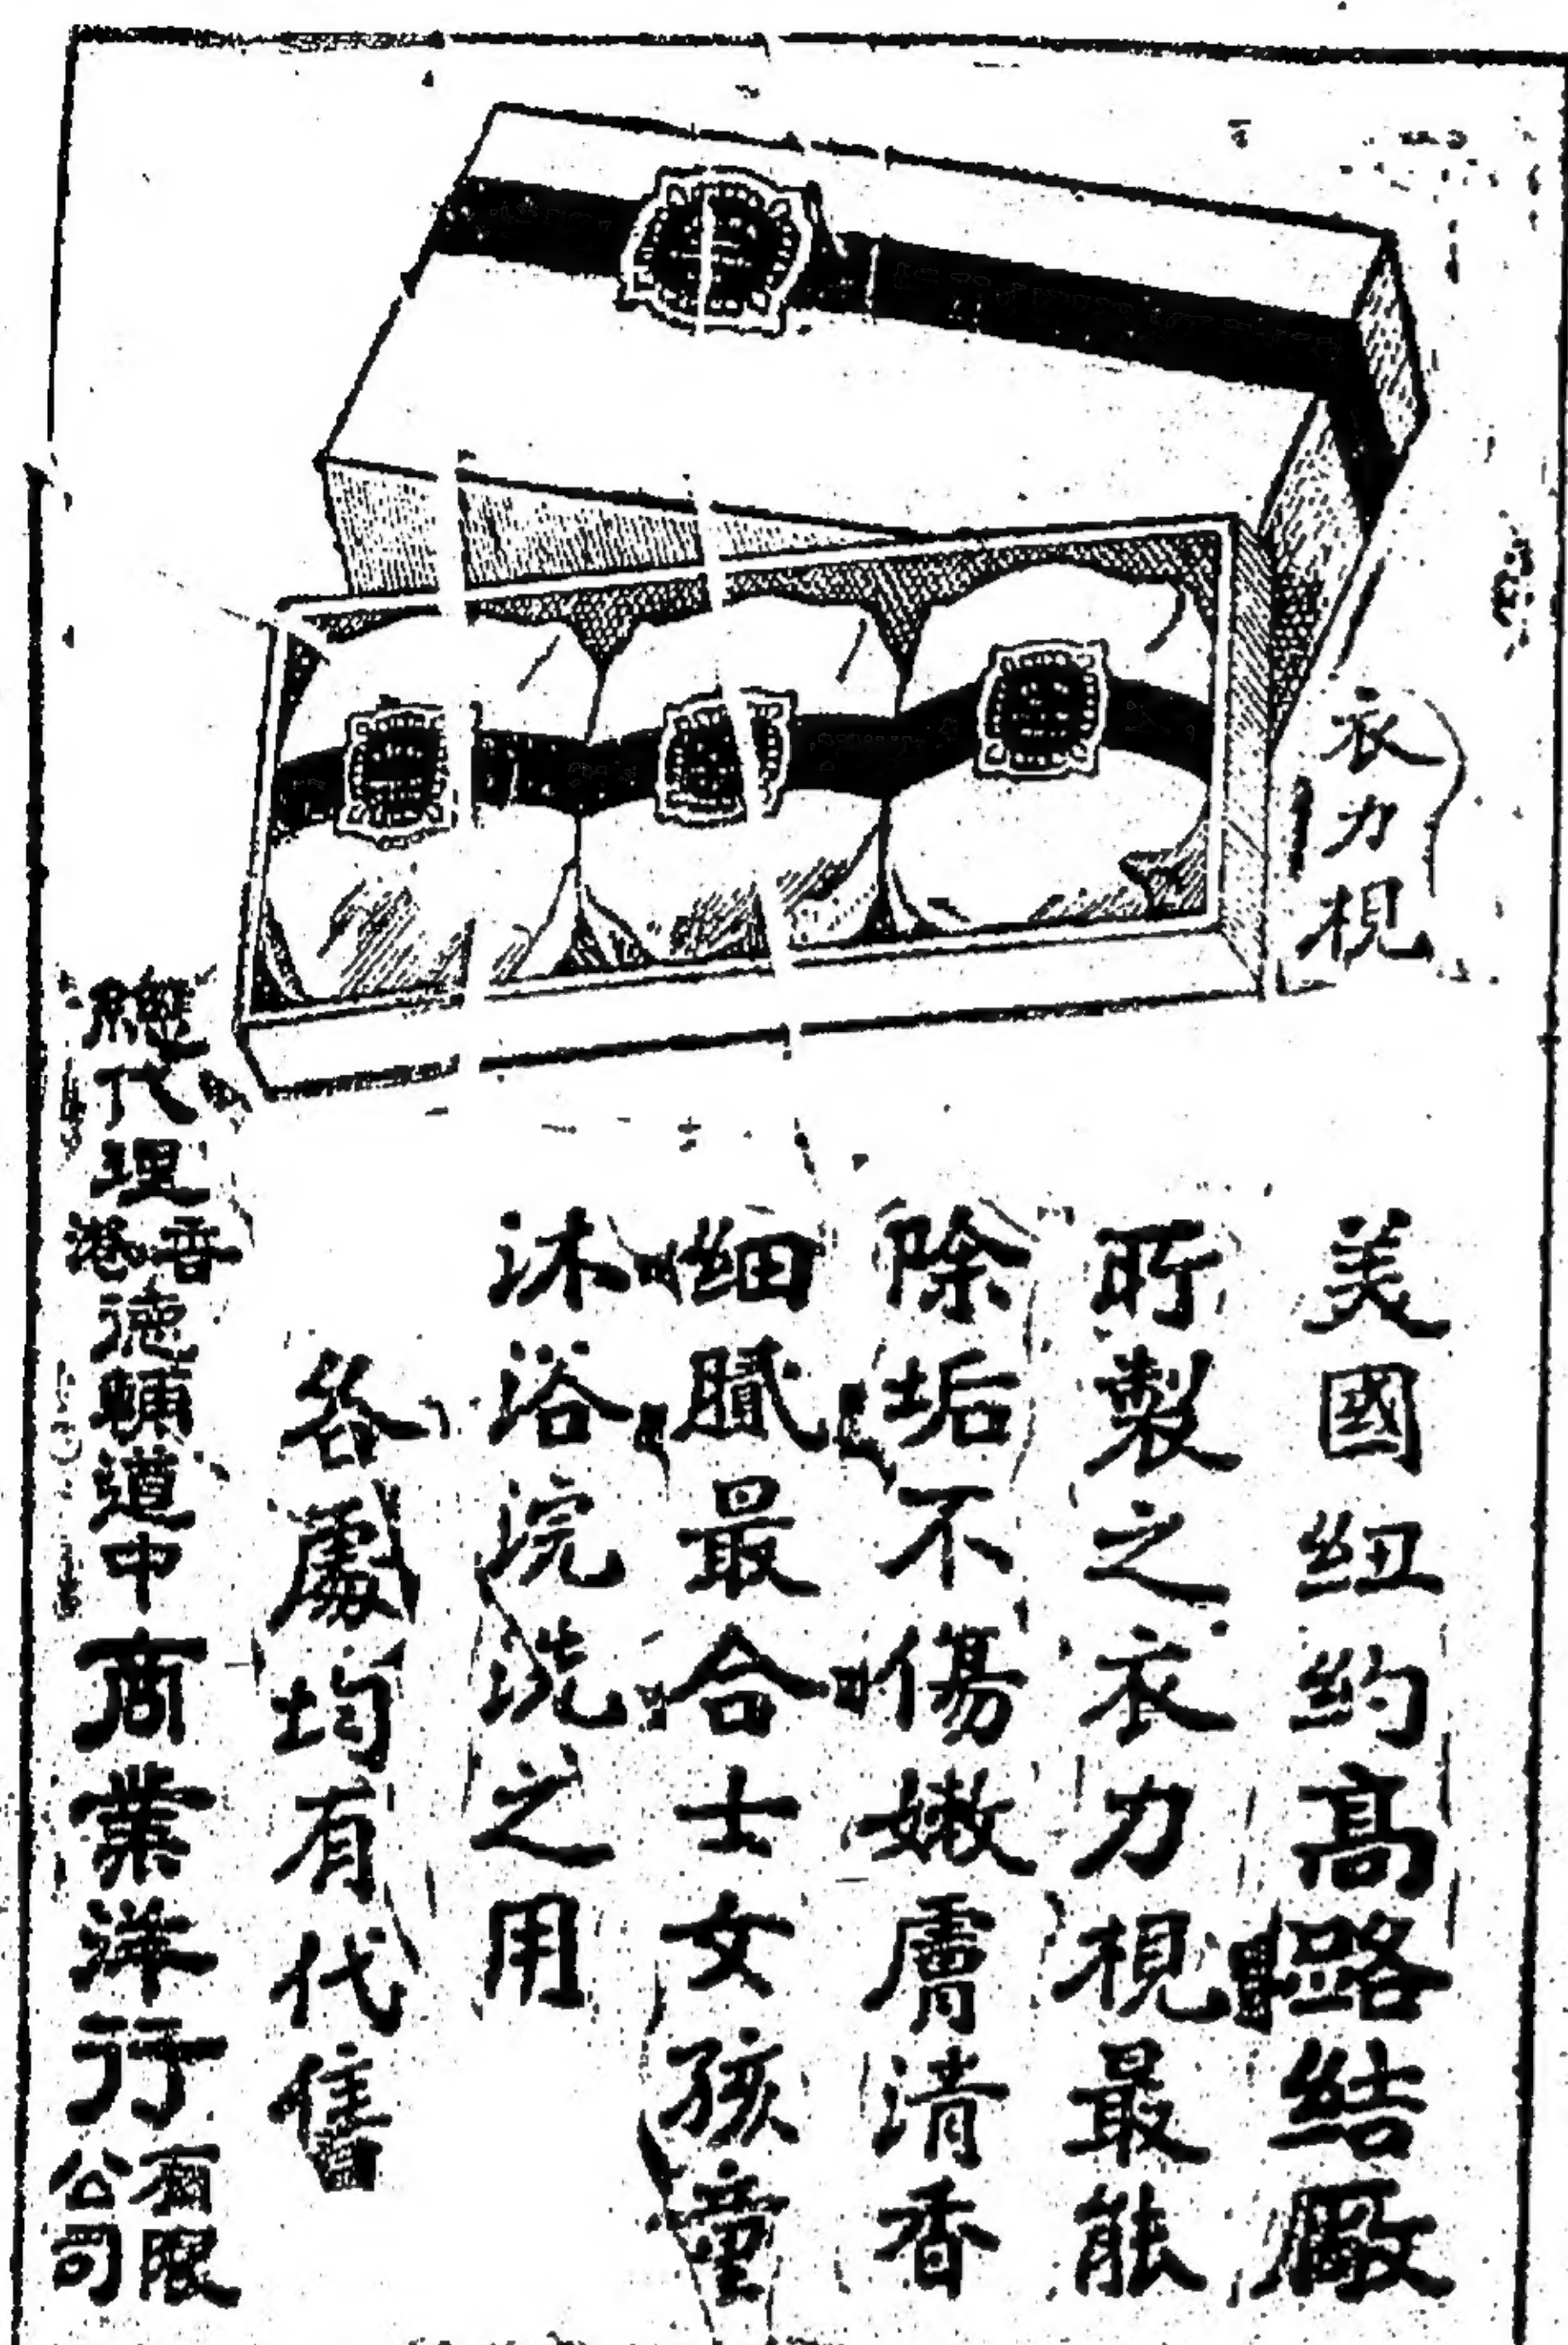 衣力梘
美國紐約高路結厰
所製之衣力梘最能
除垢不傷嫩膚清香
细膩最合士女孩童
沐浴浣洗之用
各處均有代售
總代理香港德輔道中商業洋行有限公司